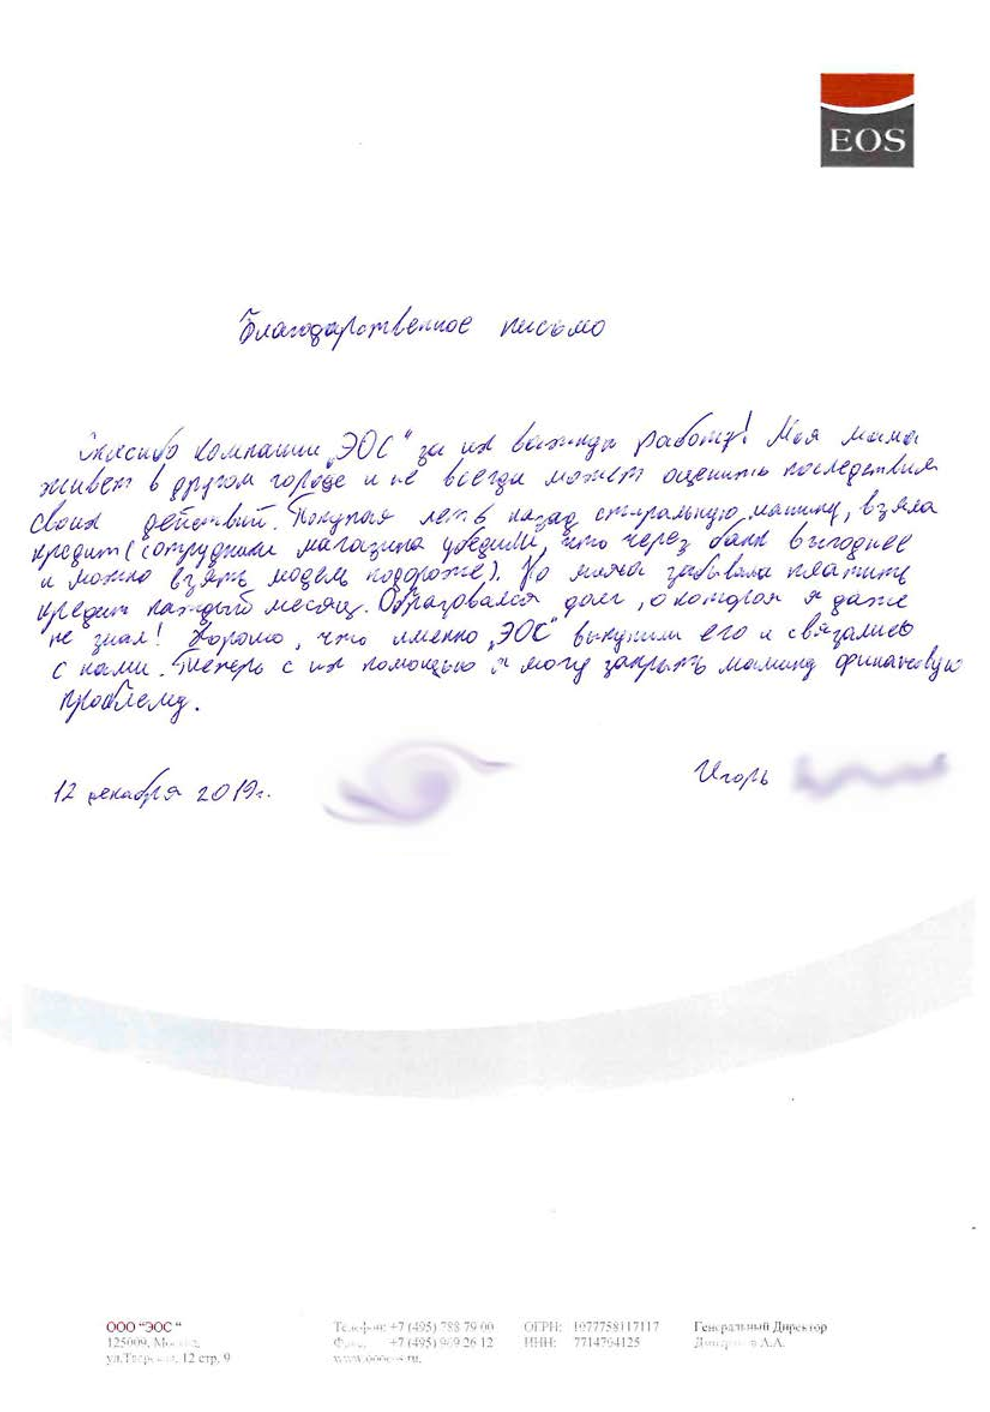 EOS
Благодарственное письмо
Спасибо компании „ЭОС“ за их важную работу! Моя мама
живет в другом городе и не всегда может оценить последствия
своих действий. Покупая лет 6 назад стиральную машину, взяла
кредит (сотрудники магазина убедили, что через банк выгоднее
и можно взять модель подороже). Но мама забывала платить
кредит каждый месяц. Образовался долг, о котором я даже
не знал! Хорошо, что именно „ЭОС“ выкупили его и связались
с нами. Теперь с их помощью я могу закрыть мамину финансовую
проблему.
12 декабря 2019г.
Игорь
ООО "ЭОС "
125009,
12 стр. 9
Телефон: +7 (495) 788 79 00
+7 (495) 969 26 12
ОГРН: 1077758117117
ИНН: 7714704125
Генеральный Директор
А.А.